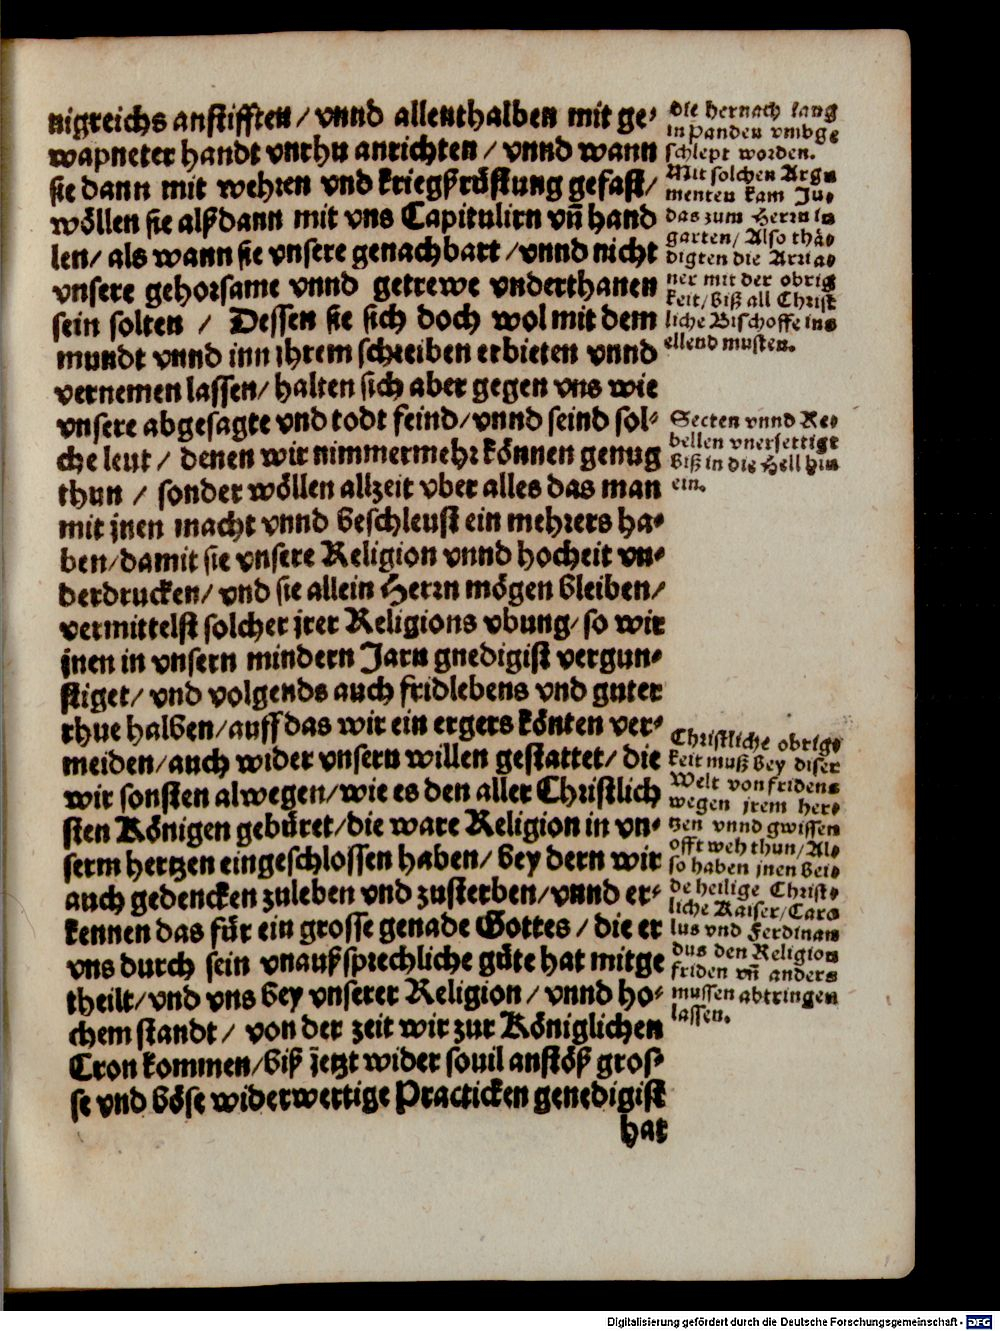 nigreichs anstifften/ vnnd allenthalben mit ge-
wapneter handt vnrhu anrichten/ vnnd wann
sie dann mit wehren vnd kriegßrüstung gefast/
wöllen sie alßdann mit vns Capitulirn vñ hand
len/ als wann sie vnsere genachbart/ vnnd nicht
vnsere gehorsame vnnd getrewe vnderthanen
sein solten / Dessen sie sich doch wol mit dem
mundt vnnd inn ihrem schreiben erbieten vnnd
vernemen lassen/ halten sich aber gegen vns wie
vnsere abgesagte vnd todt feind/ vnnd seind sol-
che leut/ denen wir nimmermehr können genug
thun / sonder wöllen allzeit vber alles das man
mit jnen macht vnnd beschleust ein mehrers ha-
ben/ damit sie vnsere Religion vnnd hocheit vn-
derdrucken/ vnd sie allein Herrn mögen bleiben/
vermittelst solcher jrer Religions vbung/ so wir
jnen in vnsern mindern Jarn gnedigist vergun-
stiget/ vnd volgends auch fridlebens vnd guter
rhue halben/ auff das wir ein ergers könten ver-
meiden/ auch wider vnsern willen gestattet/ die
wir sonsten alwegen/ wie es den aller Christlich
sten Königen gebüret/ die ware Religion in vn-
serm hertzen eingeschlossen haben/ bey dern wir
auch gedencken zuleben vnd zusterben/ vnnd er-
kennen das für ein grosse genade Gottes/ die er
vns durch sein vnaußsprechliche güte hat mitge
theilt/ vnd vns bey vnserer Religion/ vnnd ho-
chem standt/ von der zeit wir zur Königlichen
Cron kommen/ biß jetzt wider souil anstöß gros-
se vnd böse widerwertige Practicken genedigist
hat
die hernach lang
in panden vmbge
schlept worden.
Mit solchen Argu
menten kam Ju-
das zum Herrn in
garten/ Also thä-
digten die Arria-
ner mit der obrig
keit/ biß all Christ
liche Bischoffe ins
ellend musten.
Secten vnnd Re-
bellen vnersettigt
biß in die Hell hin
ein.
Christliche obrig-
keit muß bey diser
Welt von fridens
wegen jrem her-
tzen vnnd gwissen
offt weh thun/ Al-
so haben jnen bei-
de heilige Christ-
liche Kaiser/ Caro
lus vnd Ferdinan
dus den Religion
friden vñ anders
mussen abtringen
lassen.
Digitalisierung gefördert durch die Deutsche Forschungsgemeinschaft - DFG